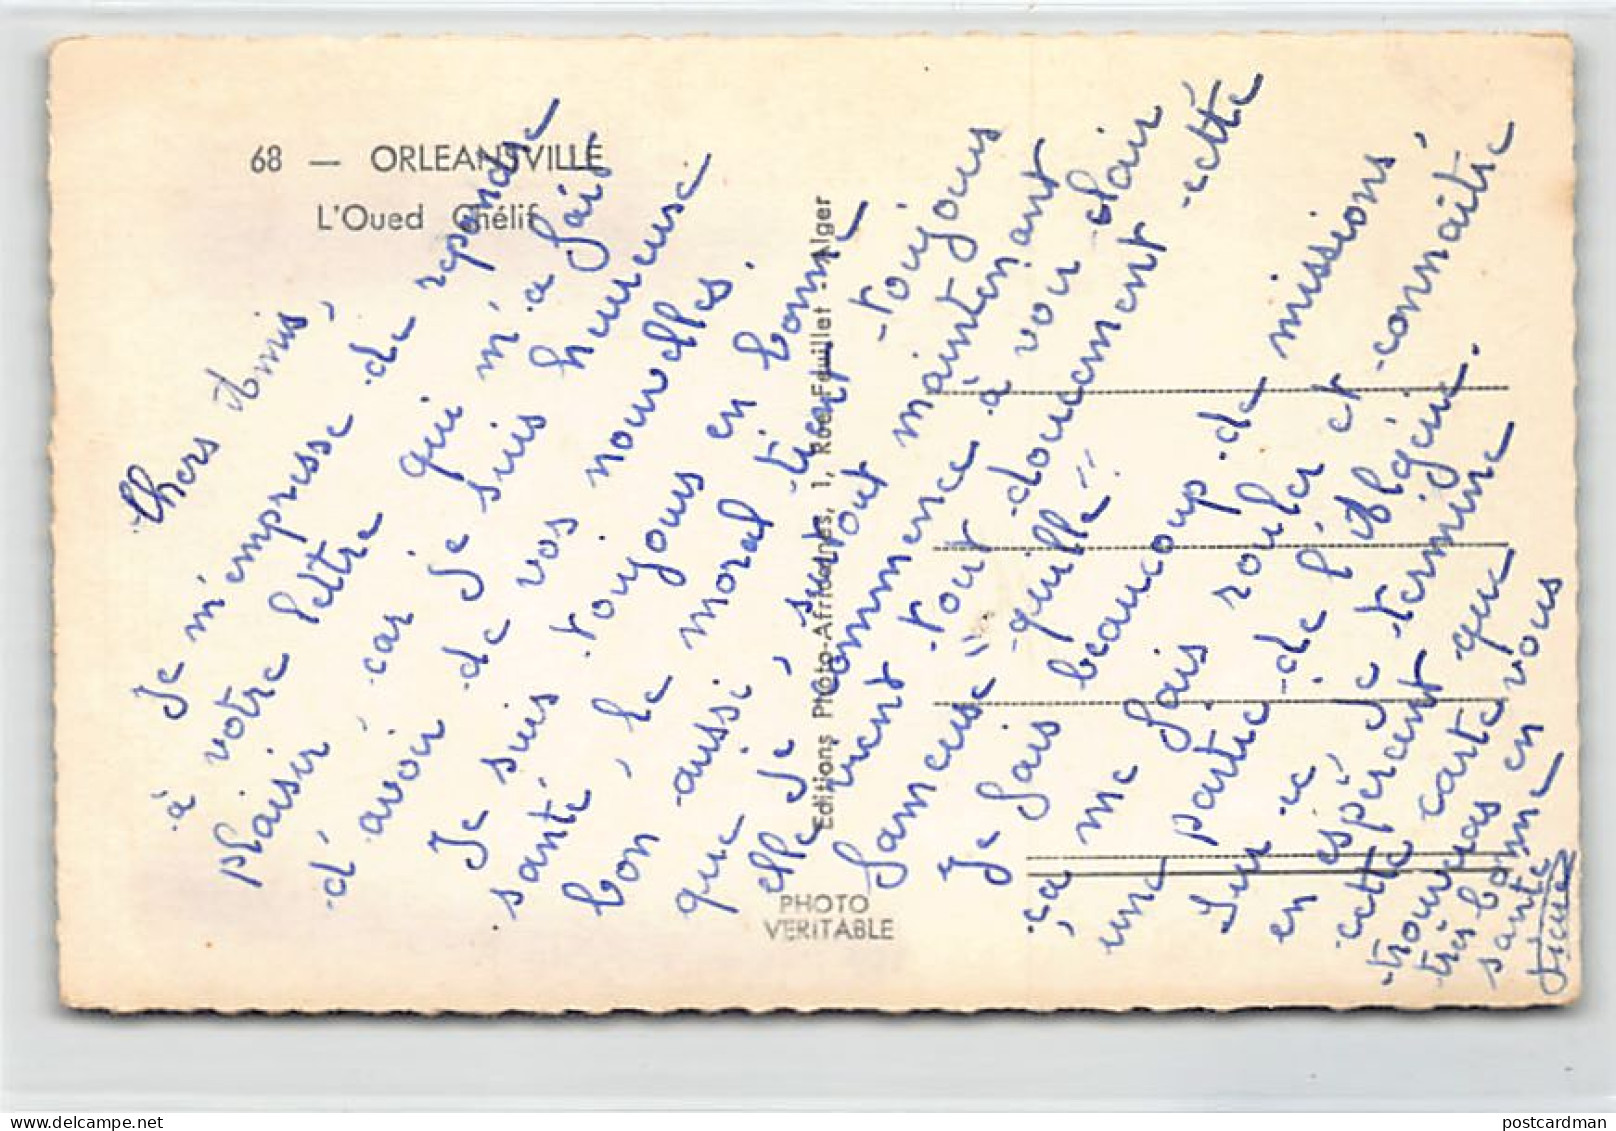 68 — ORLEANSVILLE
L'Oued Chélif
Chers Amis,
Je m'empresse de repondre
à votre lettre qui m'a fait
plaisir, car je suis heureuse
d'avoir de vos nouvelles.
Je suis toujours en bonne
santé, le moral tient toujours
bon aussi, surtout maintenant
que je commence à voir clair
elle vient tout doucement cette
fameuse "quille"
Je fais beaucoup de missions,
ça me fais rouler et connaître
une partie de l'Algérie.
Sur ce je termine
en espérent que
cette carte vous
trouveras en
très bonne
santé
Editions Photo-Africaines, 1, Rue Feuillet - Alger
PHOTO
VERITABLE
postcardman